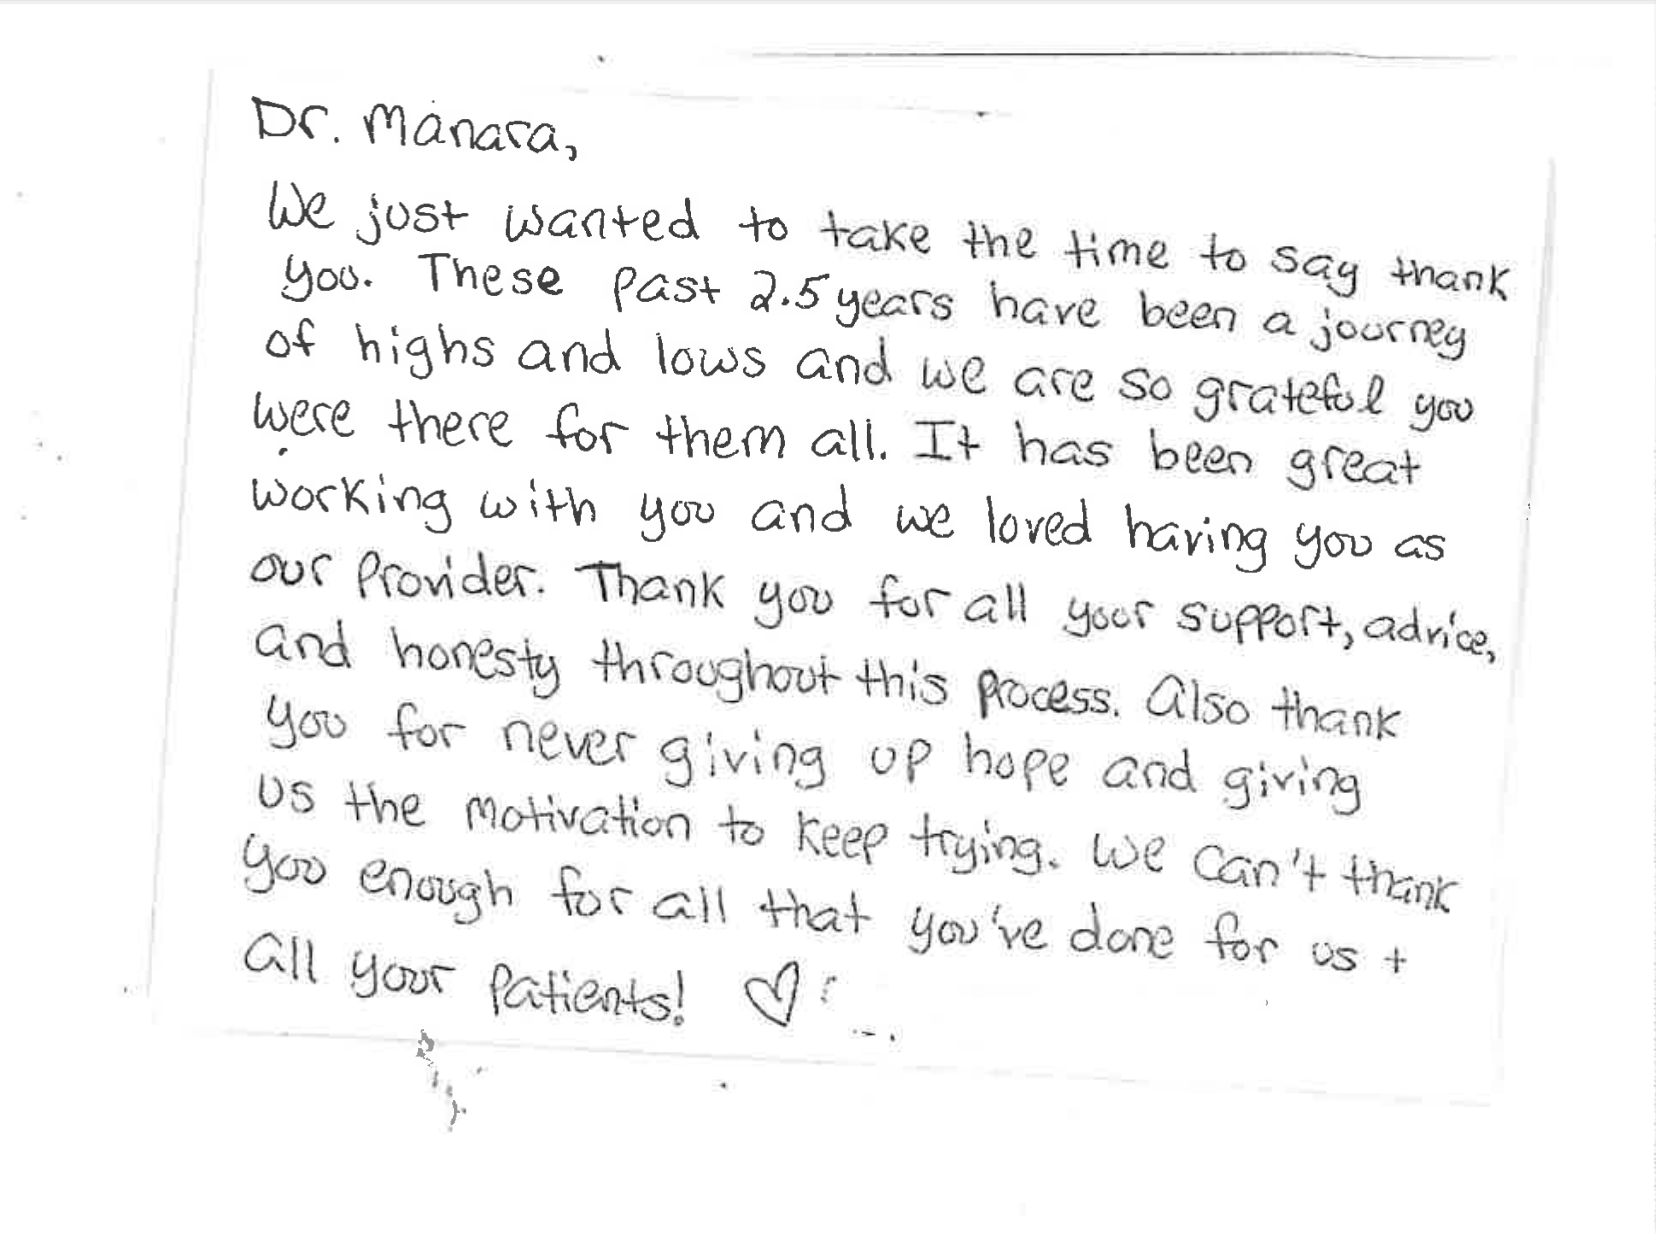 Dr. Manara,
We just wanted to take the time to say thank
you. These past 2.5 years have been a journey
of highs and lows and we are so grateful you
were there for them all. It has been great
working with you and we loved having you as
our Provider. Thank you for all your support, advice,
and honesty throughout this process. Also thank
you for never giving up hope and giving
us the motivation to keep trying. We can't thank
you enough for all that you've done for us +
all your patients! ♡